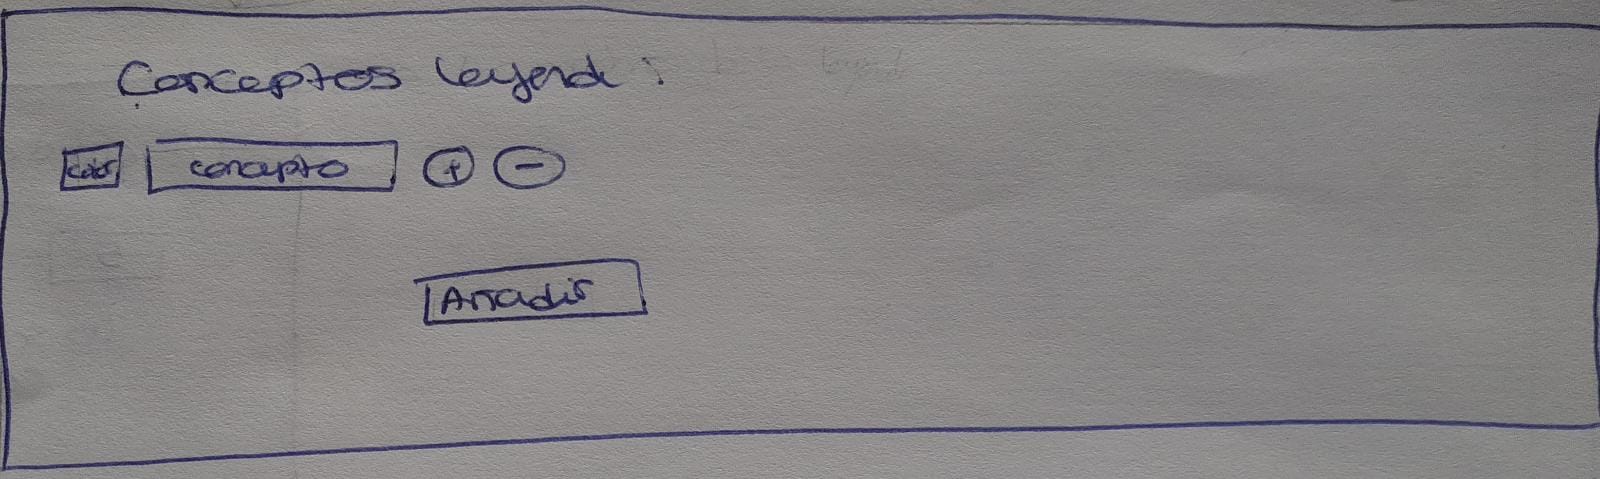 Conceptos leyend :
color concepto + -
Añadir